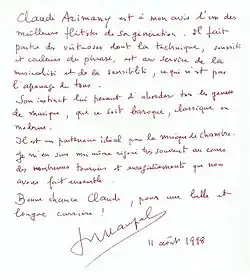 Claudi Arimany est à mon avis l'un des
meilleurs flûtistes de sa génération. Il fait
partie des virtuoses dont la technique, sonorité
et couleurs du phrasé, est au service de la
musicalité et de la sensibilité, ce qui n'est pas
l'apanage de tous.
Son instinct lui permet d'aborder tous les genres
de musique, que ce soit baroque, classique ou
moderne.
Il est un partenaire idéal pour la musique de chambre.
Je m'en suis moi même réjoui très souvent au cours
des nombreuses tournées et enregistrements que nous
avons fait ensemble.
Bonne chance Claudi, pour une belle et
longue carrière !
11 août 1998